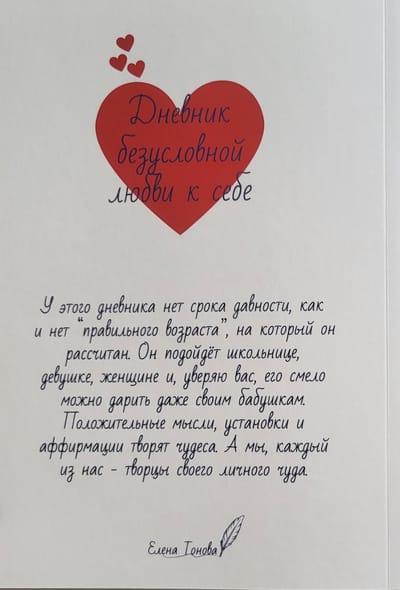 Дневник
безусловной
любви к себе
У этого дневника нет срока давности, как
и нет "правильного возраста", на который он
рассчитан. Он подойдёт школьнице,
девушке, женщине и, уверяю вас, его смело
можно дарить даже своим бабушкам.
Положительные мысли, установки и
аффирмации творят чудеса. А мы, каждый
из нас - творцы своего личного чуда.
Елена Тонова